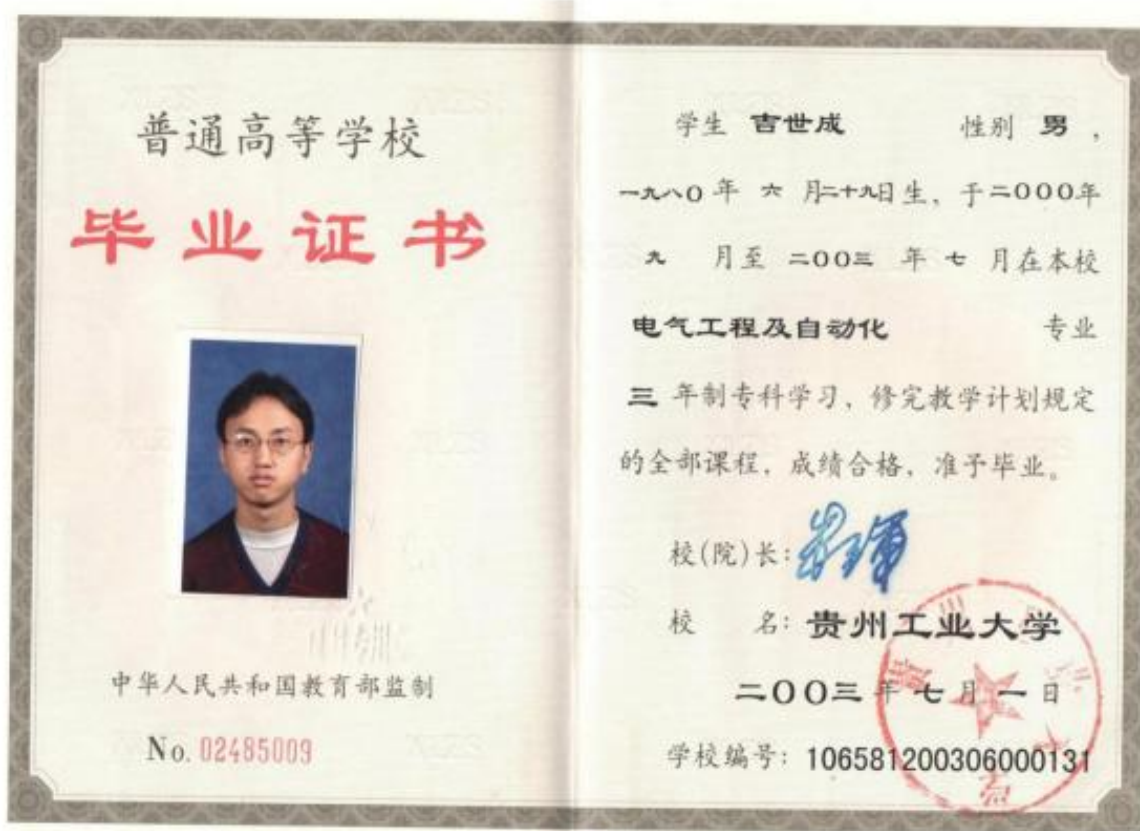 普通高等学校
毕业证书
中华人民共和国教育部监制
No. 02485009
学生 吉世成 性别 男，
一九八〇年 六 月二十九日生，于二〇〇〇年
九 月至 二〇〇三 年 七 月在本校
电气工程及自动化 专业
三 年制专科学习，修完教学计划规定
的全部课程，成绩合格，准予毕业。
校(院)长：
校 名：贵州工业大学
二〇〇三年 七月 一 日
学校编号：106581200306000131